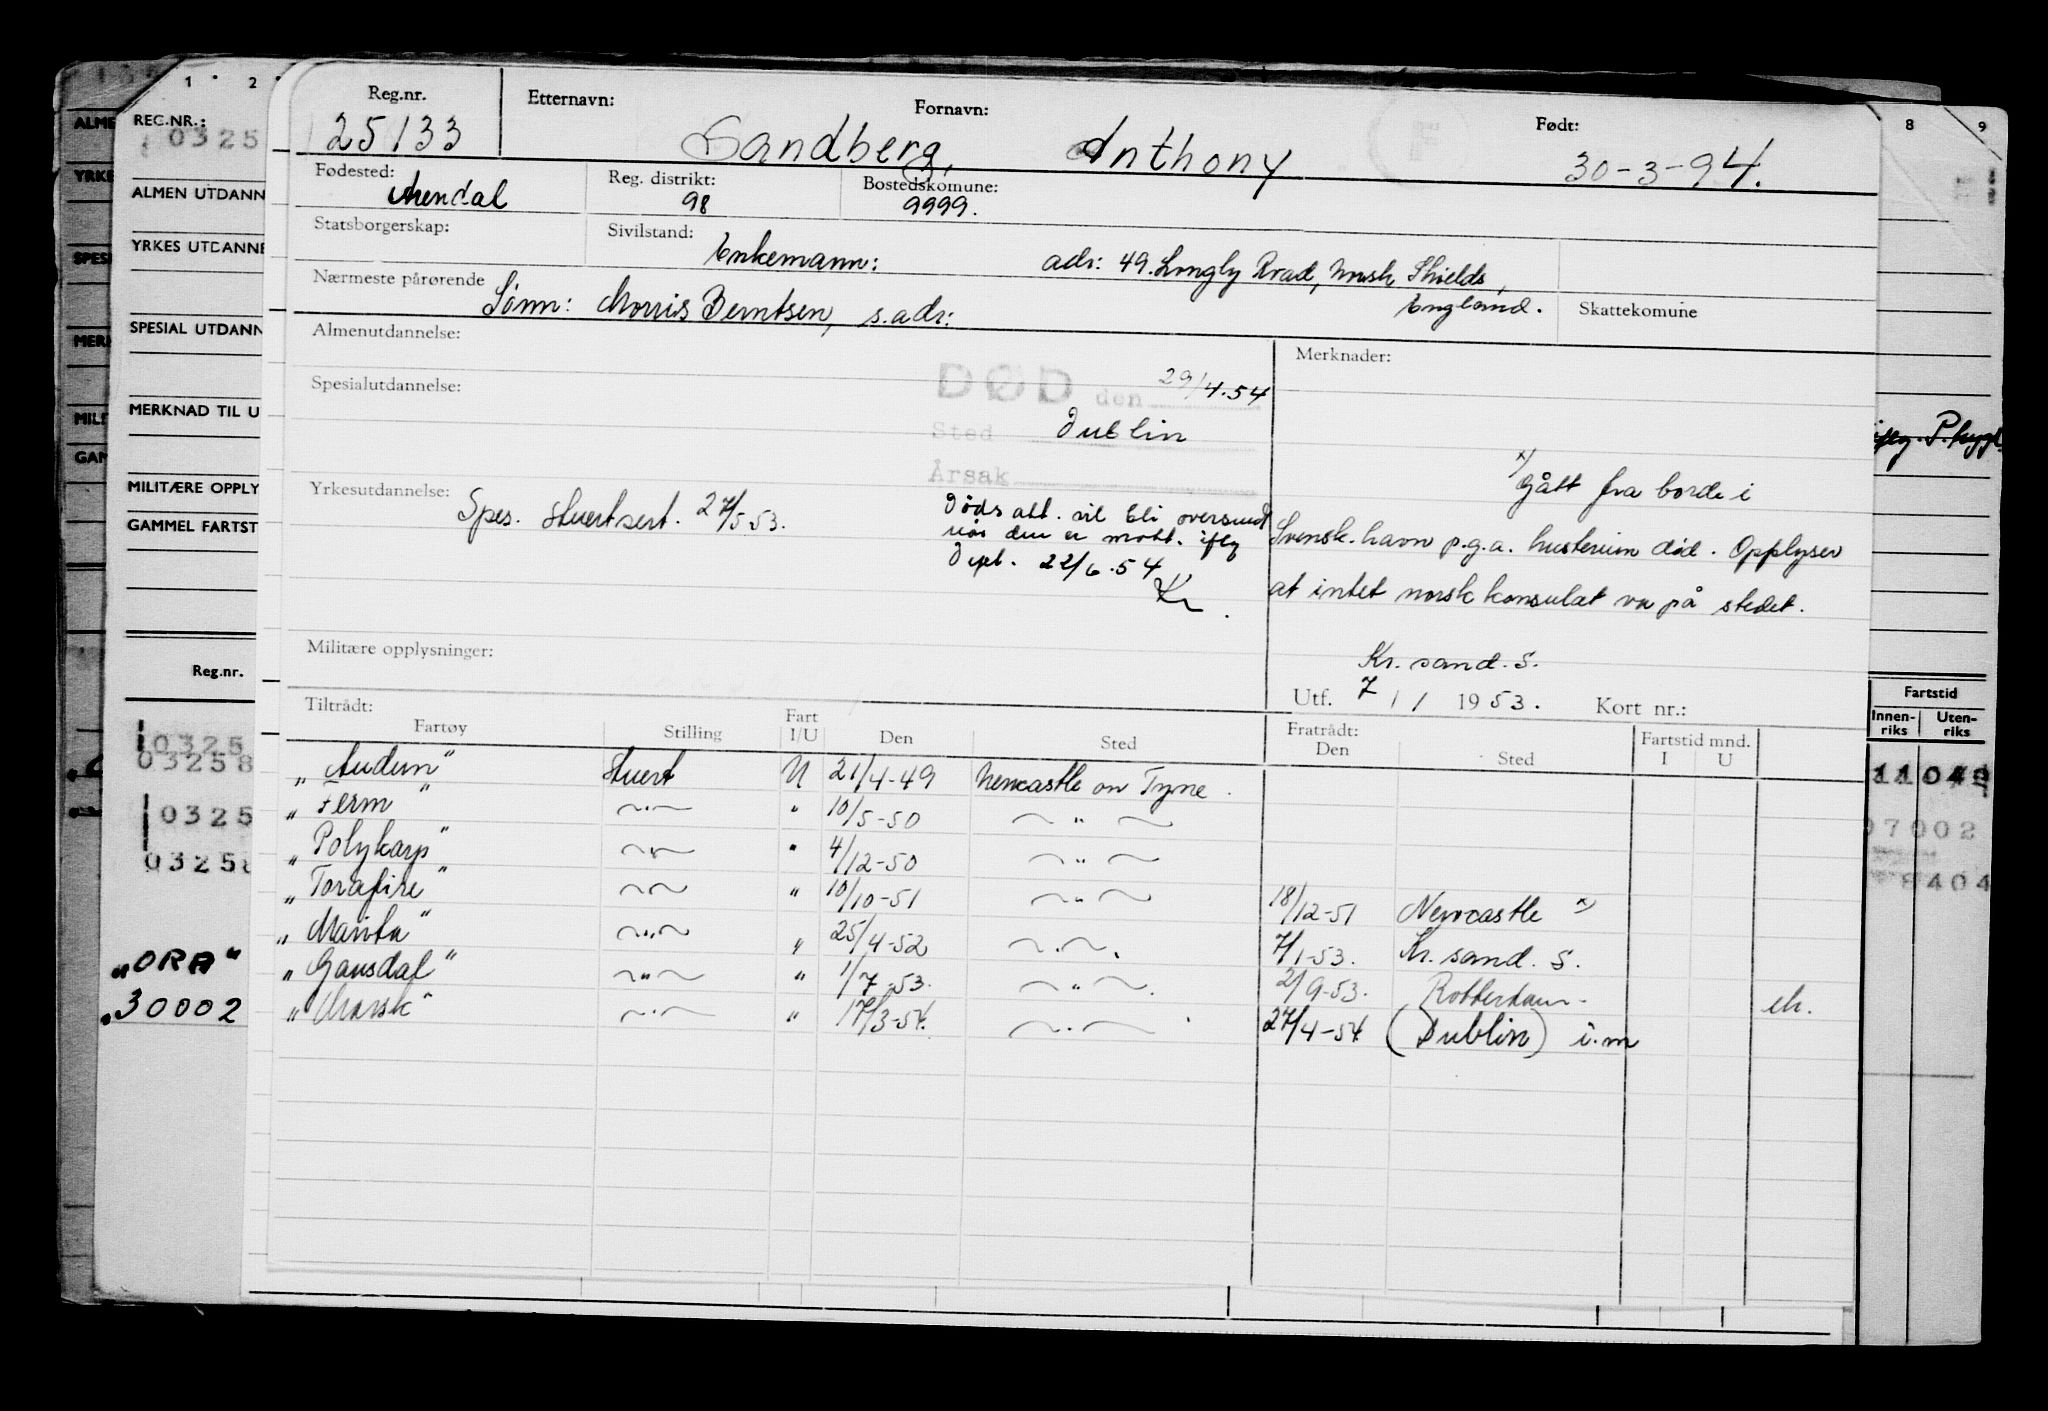 1 2
8 9
REG.NR.:
0325
ALMEN UTDANN
YRKES UTDANNE
SPESIAL UTDANN
MERKNAD TIL U
MILITÆRE OPPLY
GAMMEL FARTST
Reg.nr.
0325
03258
0325
03258
"ORA"
30002
Reg.nr. Etternavn: Fornavn: Født:
25133 Sandberg, Anthony 30-3-94.
Fødested: Reg. distrikt: Bostedskomune:
Arendal 98 9999.
Statsborgerskap: Sivilstand:
Enkemann: adr: 49. Longly Road, North Shields,
England.
Nærmeste pårørende Skattekomune
Sønn: Morris Berntsen, s.adr:
Almenutdannelse: Merknader:
Spesialutdannelse:
DØD den 29/4.54
Sted Dublin
Årsak
Yrkesutdannelse:
Spes. stuertsert. 27/5 53.
Dødsatt. vil bli oversendt
når den er mott. iflg
Dept. 22/6.54
Kr.
x) Gått fra borde i
Svensk. havn p.g.a. hustruens død. Opplyser
at intet norsk konsulat var på stedet.
Militære opplysninger:
Kr. sand. S.
Utf. 7 / 1 1953. Kort nr.:
Tiltrådt: Fratrådt:
Fartøy Stilling Fart I/U Den Sted Den Sted Fartstid mnd. I U
"Audun" Stuert U 21/4-49 Newcastle on Tyne.
"Ferm" —"— " 10/5-50 —"—
"Polykarp" —"— " 4/12-50 —"—
"Torafire" —"— " 10/10-51 —"— 18/12-51 Newcastle x)
"Marita" —"— " 25/4-52 —"— 7/1-53. Kr. sand. S.
"Gausdal" —"— " 1/7-53. —"— 2/9-53. Rotterdam. eh.
"Morsk" —"— " 17/3-54. —"— 27/4-54 (Dublin) i.m
Fartstid
Innen-riks Uten-riks
11042
07002
8404